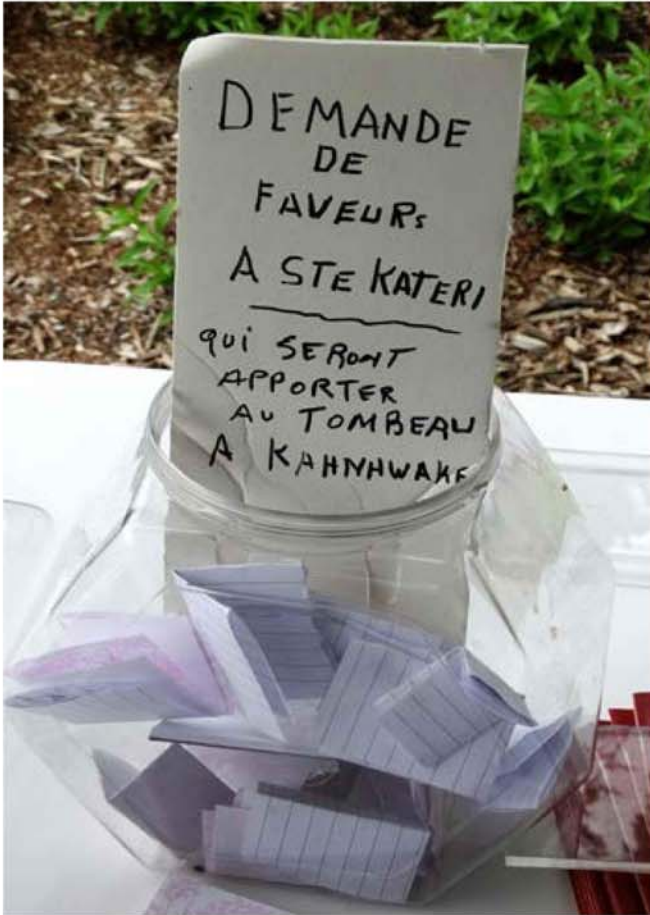 DEMANDE
DE
FAVEURs
A STE KATERI
qui SERONT
APPORTER
AU TOMBEAU
A KAHNHWAKE